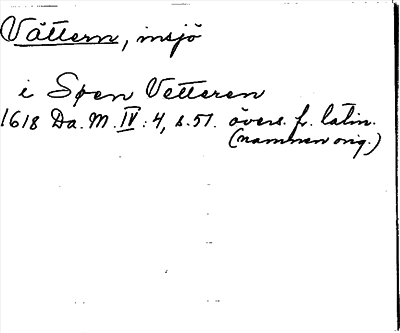 Vättern, insjö
i Søen Vetteren
1618 Da. M. IV: 4, s. 51. övers. fr. latin.
(namnen orig.)